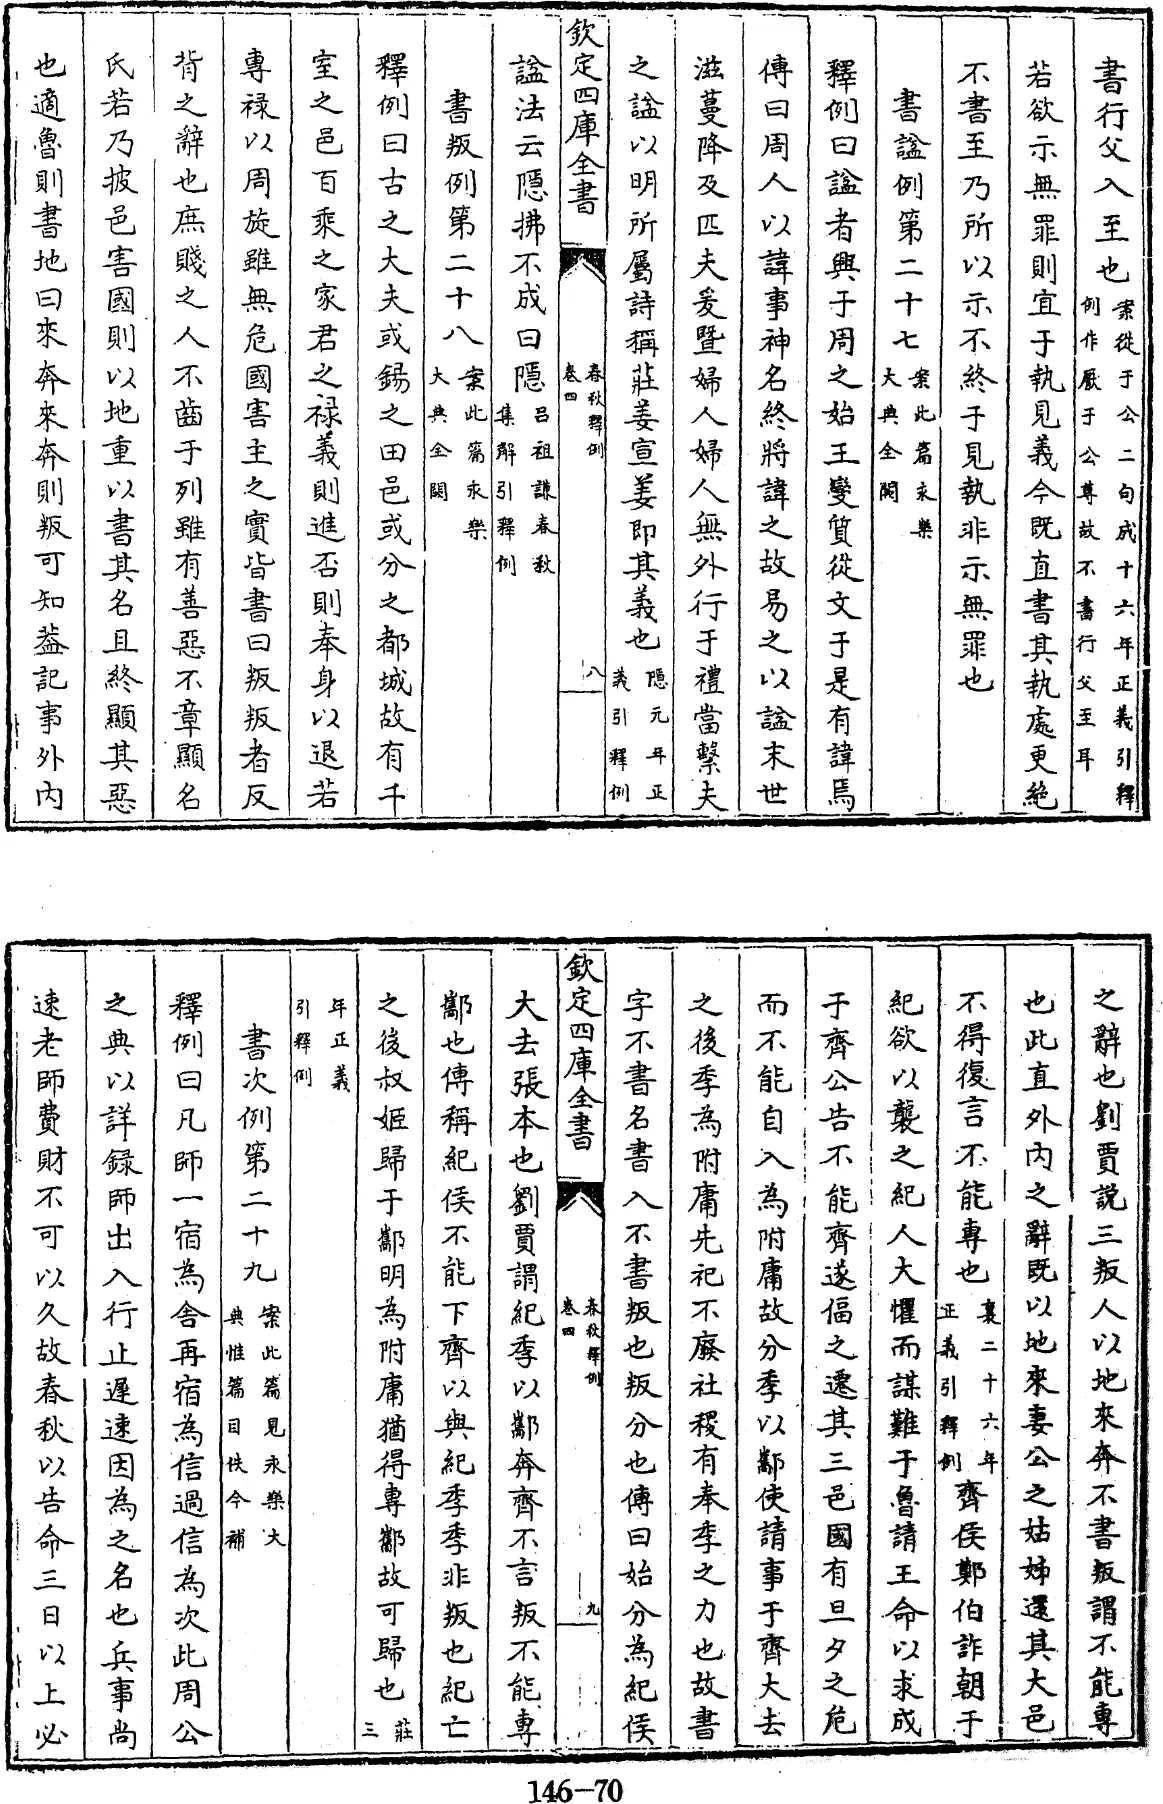 書行父入至也案從于公二句成十六年正義引釋例作厭于公尊故不書行父至耳
若欲示無罪則宜于執見義今既直書其執處更絶
不書至乃所以示不終于見執非示無罪也
書諡例第二十七案此篇永樂大典全闕
釋例曰諡者興于周之始王變質從文于是有諱焉
傳曰周人以諱事神名終將諱之故易之以諡末世
滋蔓降及匹夫爰暨婦人婦人無外行于禮當繫夫
之諡以明所屬詩稱莊姜宣姜即其義也隱元年正義引釋例
欽定四庫全書
春秋釋例
卷四
八
諡法云隱拂不成曰隱吕祖謙春秋集解引釋例
書叛例第二十八案此篇永樂大典全闕
釋例曰古之大夫或錫之田邑或分之都城故有千
室之邑百乘之家君之禄義則進否則奉身以退若
專禄以周旋雖無危國害主之實皆書曰叛叛者反
背之辭也庶賤之人不齒于列雖有善惡不章顯名
氏若乃披邑害國則以地重以書其名且終顯其惡
也適魯則書地曰來奔來奔則叛可知葢記事外内
之辭也劉賈説三叛人以地來奔不書叛謂不能專
也此直外内之辭既以地來妻公之姑姊還其大邑
不得復言不能專也襄二十六年正義引釋例齊侯鄭伯詐朝于
紀欲以襲之紀人大懼而謀難于魯請王命以求成
于齊公告不能齊遂偪之遷其三邑國有旦夕之危
而不能自入為附庸故分季以酅使請事于齊大去
之後季為附庸先祀不廢社稷有奉季之力也故書
字不書名書入不書叛也叛分也傳曰始分為紀侯
欽定四庫全書
春秋釋例
卷四
九
大去張本也劉賈謂紀季以酅奔齊不言叛不能專
酅也傳稱紀侯不能下齊以與紀季季非叛也紀亡
之後叔姬歸于酅明為附庸猶得專酅故可歸也莊三
年正義引釋例
書次例第二十九案此篇見永樂大典惟篇目佚今補
釋例曰凡師一宿為舍再宿為信過信為次此周公
之典以詳録師出入行止遲速因為之名也兵事尚
速老師費財不可以久故春秋以告命三日以上必
146-70